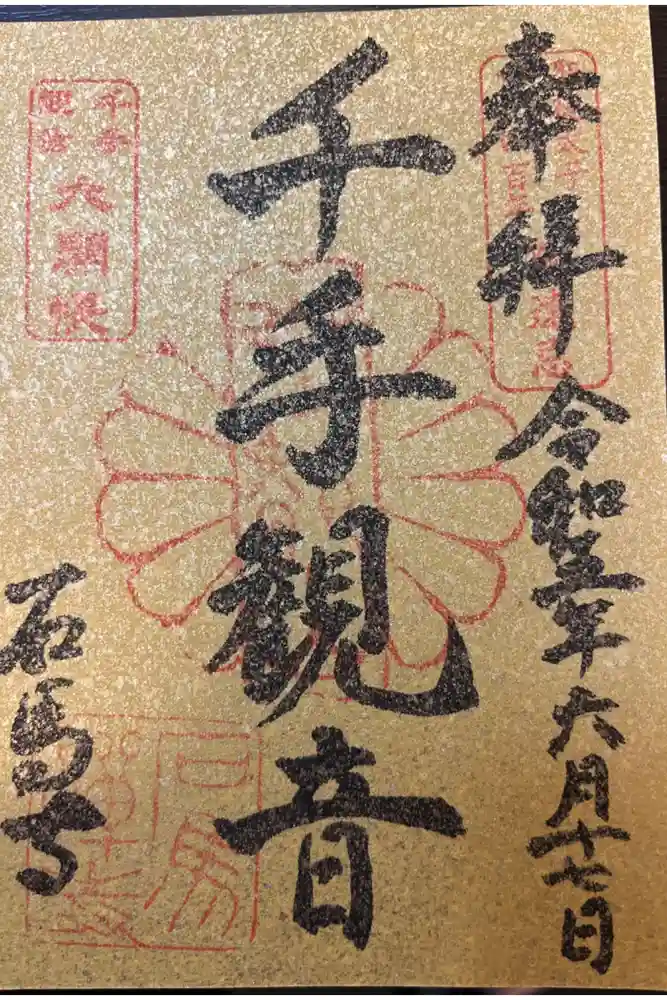 奉拝
令和五年六月十七日
千手観音
千手
観音
大開帳
石馬寺